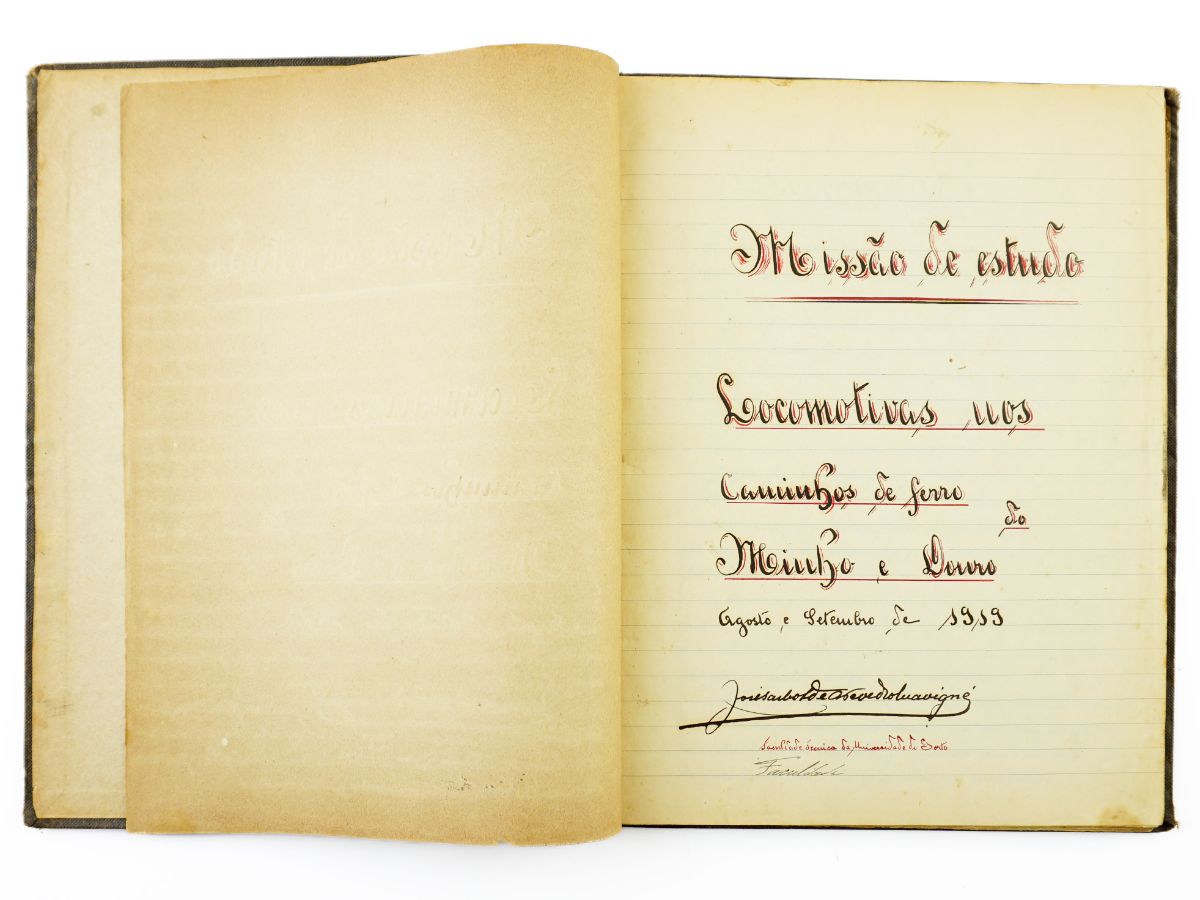 Missão de estudo
Locomotivas nos
Caminhos de ferro
do
Minho e Douro
Agosto e Setembro de 1919
de Azevedo
Faculdade Técnica da Universidade do Porto
Faculdade